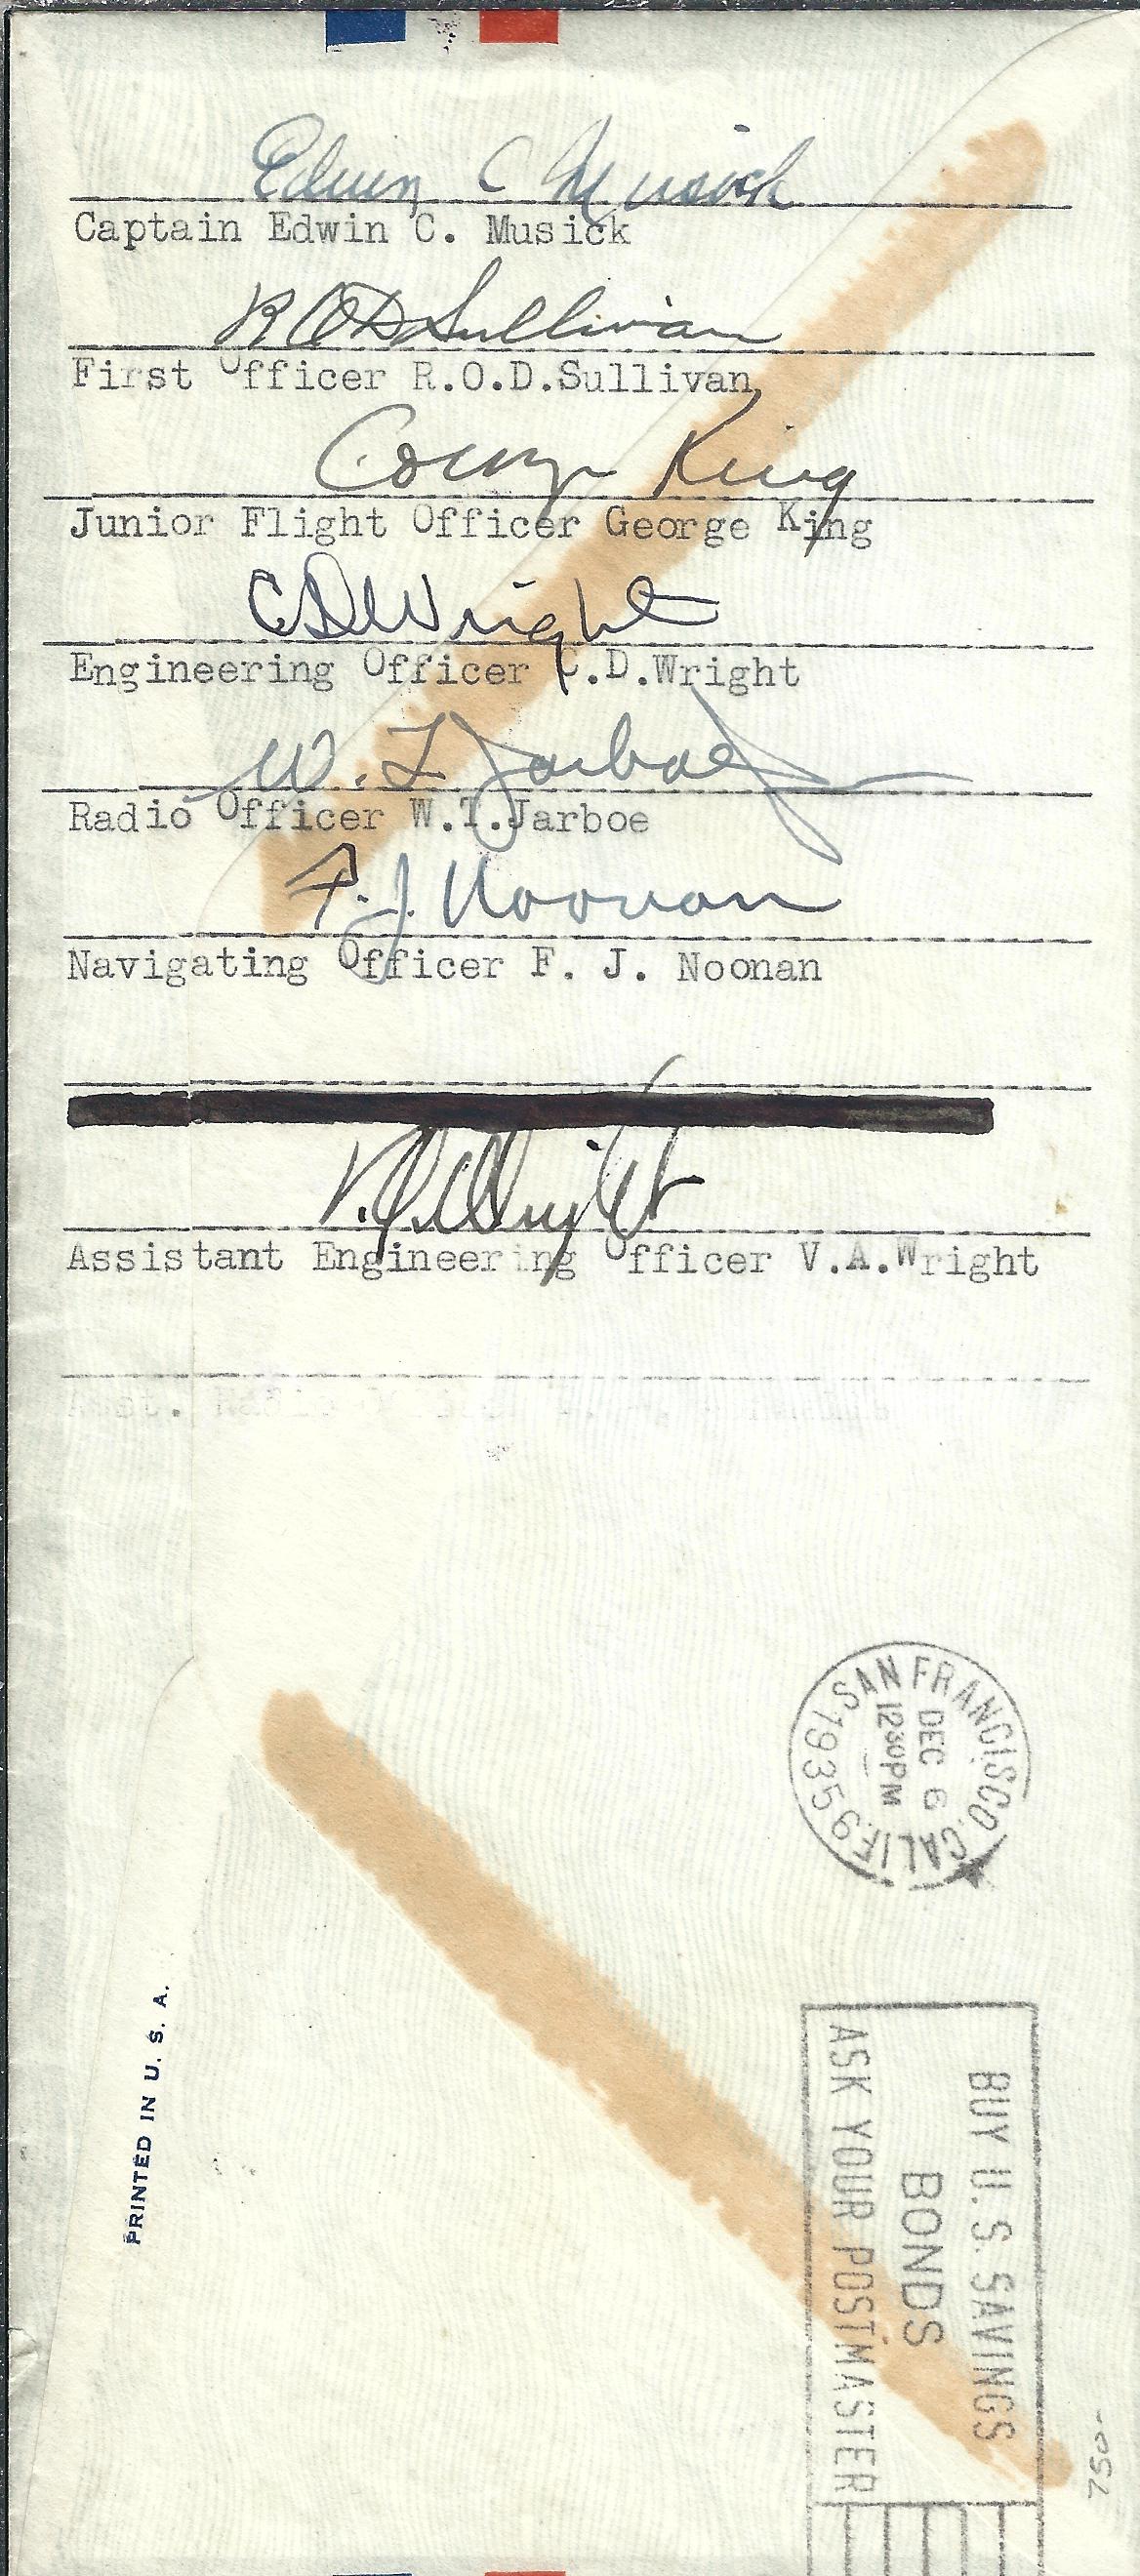 Edwin C Musick
Captain Edwin C. Musick
R O D Sullivan
First Officer R.O.D.Sullivan
George King
Junior Flight Officer George King
C D Wright
Engineering Officer C.D.Wright
W. T Jarboe Jr
Radio Officer W.T.Jarboe
F. J. Noonan
Navigating Officer F. J. Noonan
V. A. Wright
Assistant Engineering Officer V.A.Wright
SAN FRANCISCO, CALIF. 9
DEC 6
12 30 PM
1935
PRINTED IN U. S. A.
BUY U.S. SAVINGS
BONDS
ASK YOUR POSTMASTER
750-